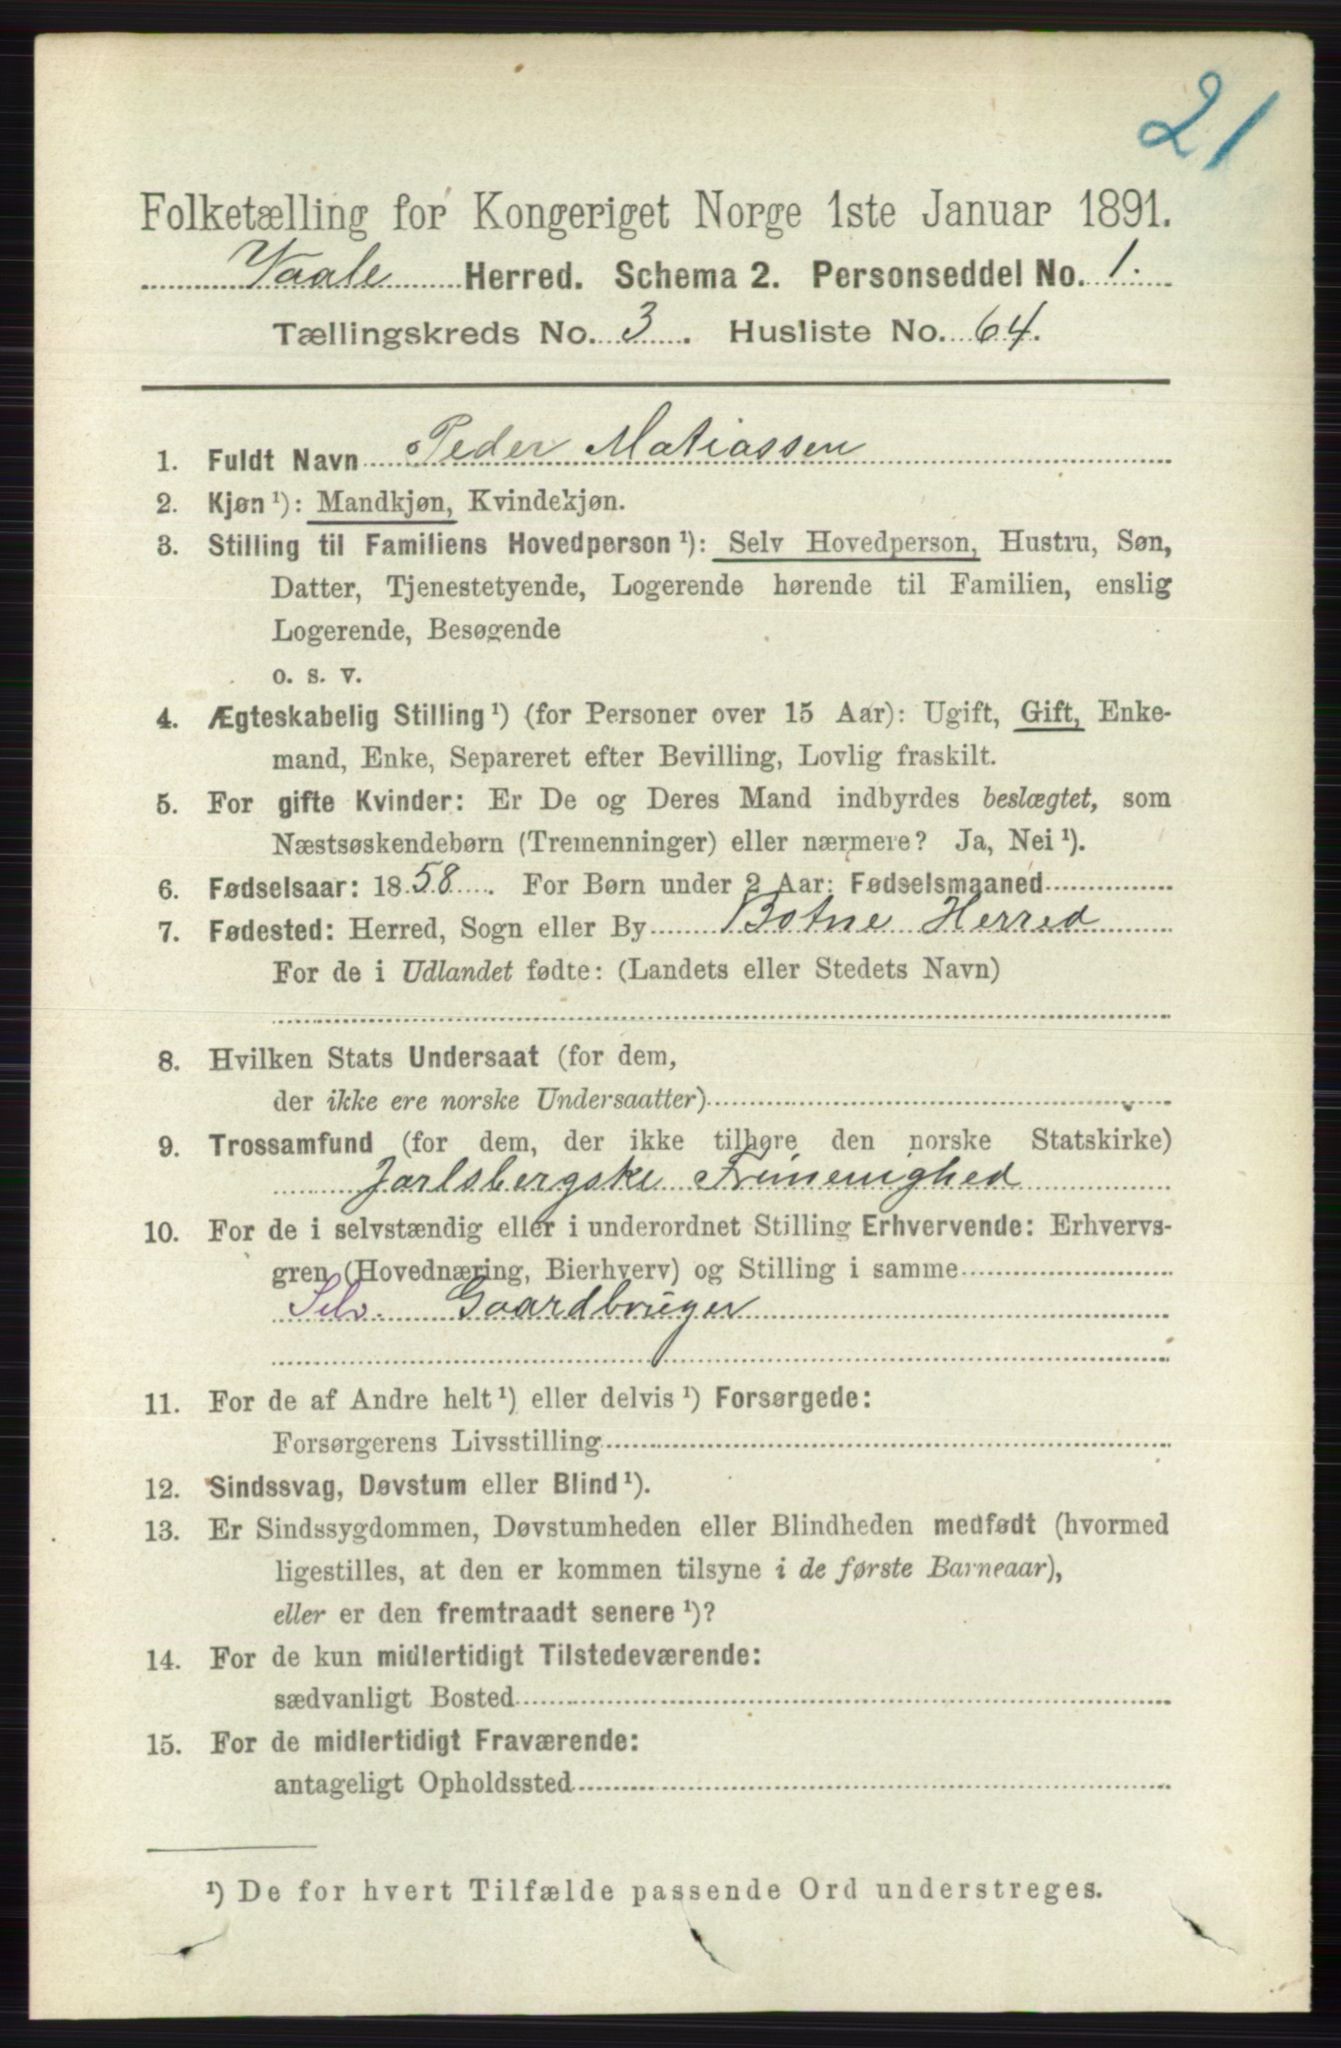 21
Folketælling for Kongeriget Norge 1ste Januar 1891.
Vaale Herred. Schema 2. Personseddel No. 1.
Tællingskreds No. 3. Husliste No. 64.
1. Fuldt Navn Peder Matiassen
2. Kjøn ¹): Mandkjøn, Kvindekjøn.
3. Stilling til Familiens Hovedperson ¹): Selv Hovedperson, Hustru, Søn,
Datter, Tjenestetyende, Logerende hørende til Familien, enslig
Logerende, Besøgende
o. s. v.
4. Ægteskabelig Stilling ¹) (for Personer over 15 Aar): Ugift, Gift, Enke-
mand, Enke, Separeret efter Bevilling, Lovlig fraskilt.
5. For gifte Kvinder: Er De og Deres Mand indbyrdes beslægtet, som
Næstsøskendebørn (Tremenninger) eller nærmere? Ja, Nei ¹).
6. Fødselsaar: 1858. For Børn under 2 Aar: Fødselsmaaned
7. Fødested: Herred, Sogn eller By Botne Herred
For de i Udlandet fødte: (Landets eller Stedets Navn)
8. Hvilken Stats Undersaat (for dem,
der ikke ere norske Undersaatter)
9. Trossamfund (for dem, der ikke tilhøre den norske Statskirke)
Jarlsbergske Frimenighed
10. For de i selvstændig eller i underordnet Stilling Erhvervende: Erhvervs-
gren (Hovednæring, Bierhverv) og Stilling i samme
Selv. Gaardbruger
11. For de af Andre helt ¹) eller delvis ¹) Forsørgede:
Forsørgerens Livsstilling
12. Sindssvag, Døvstum eller Blind ¹).
13. Er Sindssygdommen, Døvstumheden eller Blindheden medfødt (hvormed
ligestilles, at den er kommen tilsyne i de første Barneaar),
eller er den fremtraadt senere ¹)?
14. For de kun midlertidigt Tilstedeværende:
sædvanligt Bosted
15. For de midlertidigt Fraværende:
antageligt Opholdssted
¹) De for hvert Tilfælde passende Ord understreges.